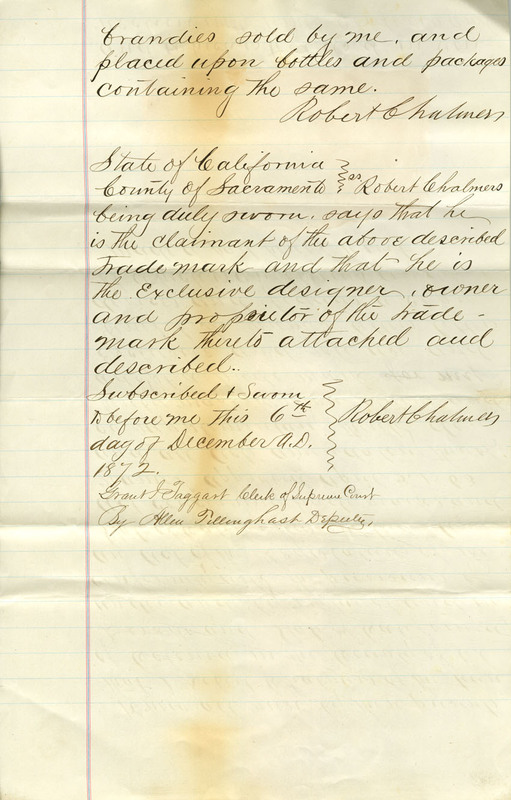 brandies sold by me, and
placed upon bottles and packages
containing the same.
Robert Chalmers
State of California
County of Sacramento } ss Robert Chalmers
being duly sworn, says that he
is the claimant of the above described
Trade mark and that he is
the Exclusive designer, owner
and proprietor of the trade-
mark thereto attached and
described..
Subscribed & Sworn
to before me this 6th
day of December A.D.
1872.
Robert Chalmers
Grant I Taggart Clerk of Supreme Court
By Allen Tillinghast Deputy,